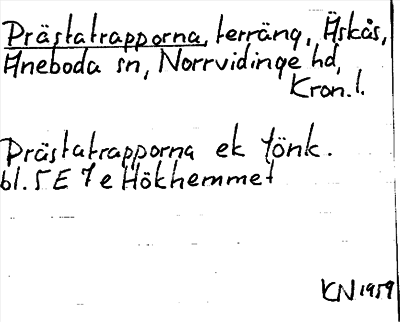 Prästatrapporna, terräng, Äskås,
Aneboda sn, Norrvidinge hd,
Kron.l.
Prästatrapporna ek Jönk.
bl. 5 E 7 e Hökhemmet
KN 1959